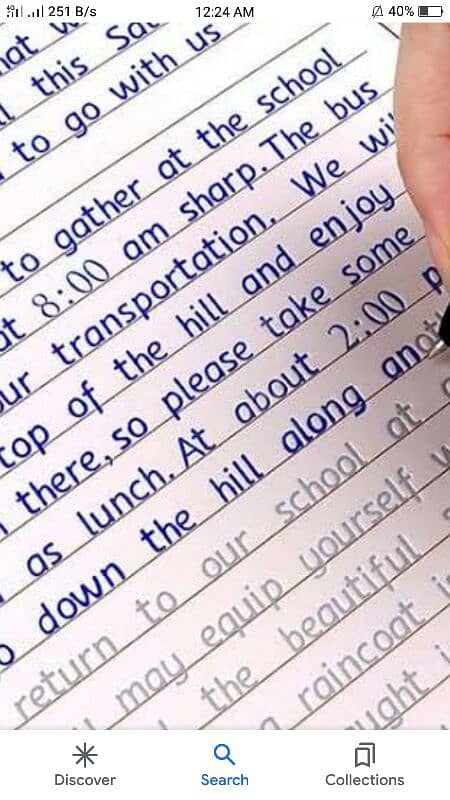 251 B/s 12:24 AM 40%
this
to go with us
to gather at the school
8:00 am sharp. The bus
transportation. We
top of the hill and enjoy
there, so please take some
as lunch. At about 2:00 p
down the hill along
return to our school at
may equip yourself
the beautiful
raincoat
Discover Search Collections